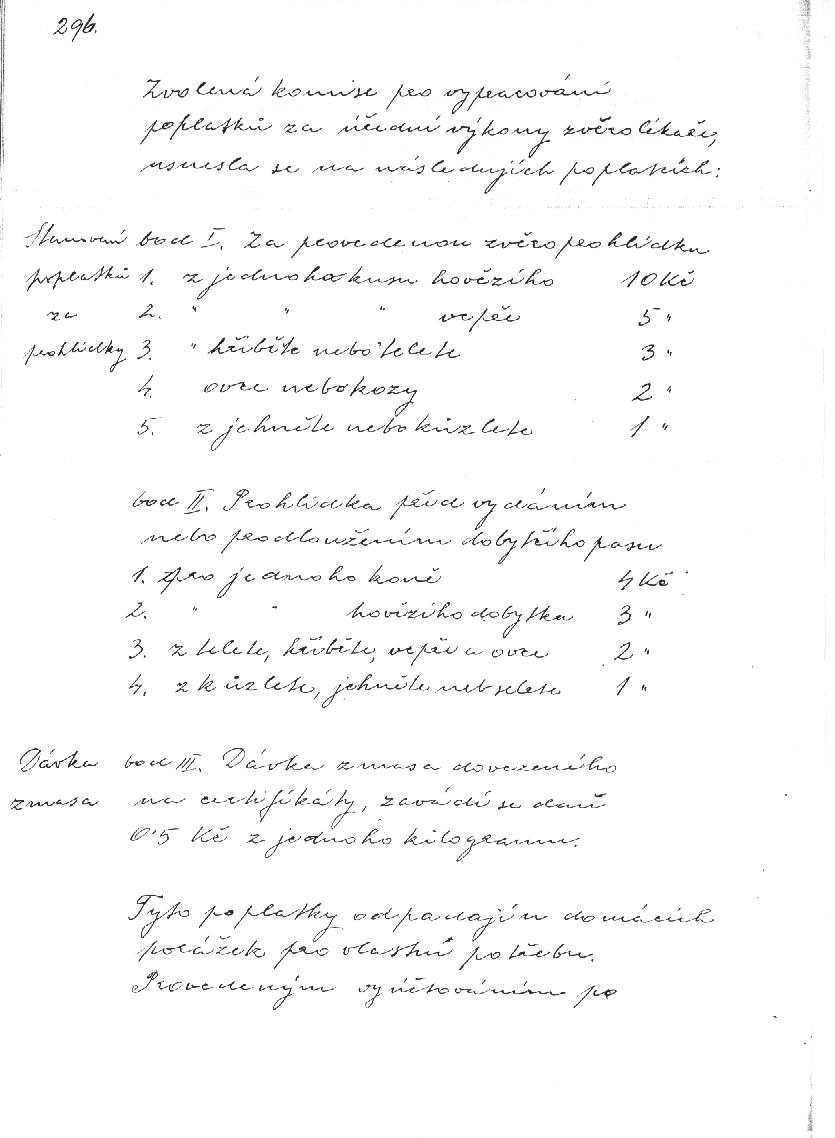 296.
Zvolená komise pro vypracování
poplatků za úřední výkony zvěrolékaře,
usnesla se na následujících poplatcích:
Stanovení bod I. Za provedenou zvěroprohlídku
poplatků 1. z jednoho kusu hovězího 10 Kč
za 2. " " " vepře 5 "
prohlídky 3. " hříběte nebo telete 3 "
4. ovce nebo kozy 2 "
5. z jehněte nebo kůzlete 1 "
bod II. Prohlídka před vydáním
nebo prodloužením dobytčího pasu
1. pro jednoho koně 4 Kč
2. " " hovězího dobytka 3 "
3. z telete, hříběte, vepře a ovce 2 "
4. z kůzlete, jehněte neb selete 1 "
Dávka bod III. Dávka z masa dovezeného
z masa na certifikáty, zavádí se daň
0'5 Kč z jednoho kilogramu.
Tyto poplatky odpadají u domácích
porážek pro vlastní potřebu.
Provedeným vyúčtováním po